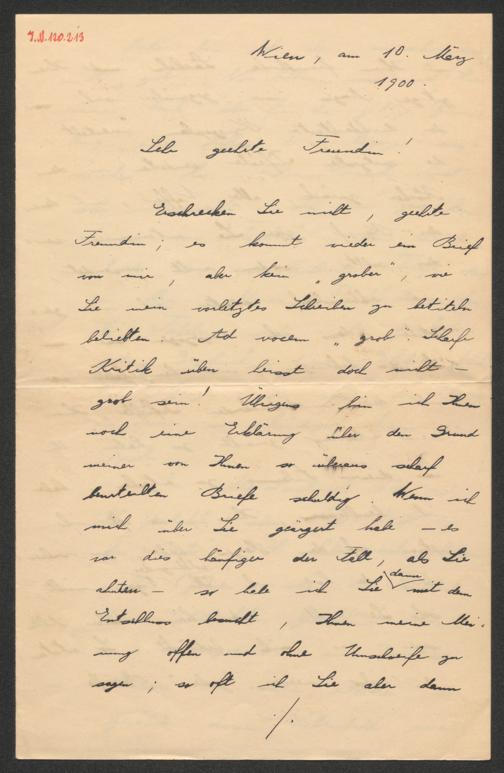 I.N. 120.213
Wien, am 10. März
1900.
Sehr geehrte Freundin!
Erschrecken Sie nicht, geehrte
Freundin; es kommt wieder ein Brief
von mir, aber kein „grober", wie
Sie mein vorletztes Schreiben zu betiteln
beliebten. Ad vocem „grob": Scharfe
Kritik üben heisst doch nicht –
grob sein! Übrigens bin ich Ihnen
noch eine Erklärung über den Grund
meiner von Ihnen so überaus scharf
beurteilten Briefe schuldig. Wenn ich
mich über Sie geärgert habe – es
war dies häufiger der Fall, als Sie
ahnten – so habe ich Sie dann mit dem
Entschluss besucht, Ihnen meine Mei-
nung offen und ohne Umschweife zu
sagen; so oft ich Sie aber dann
./.